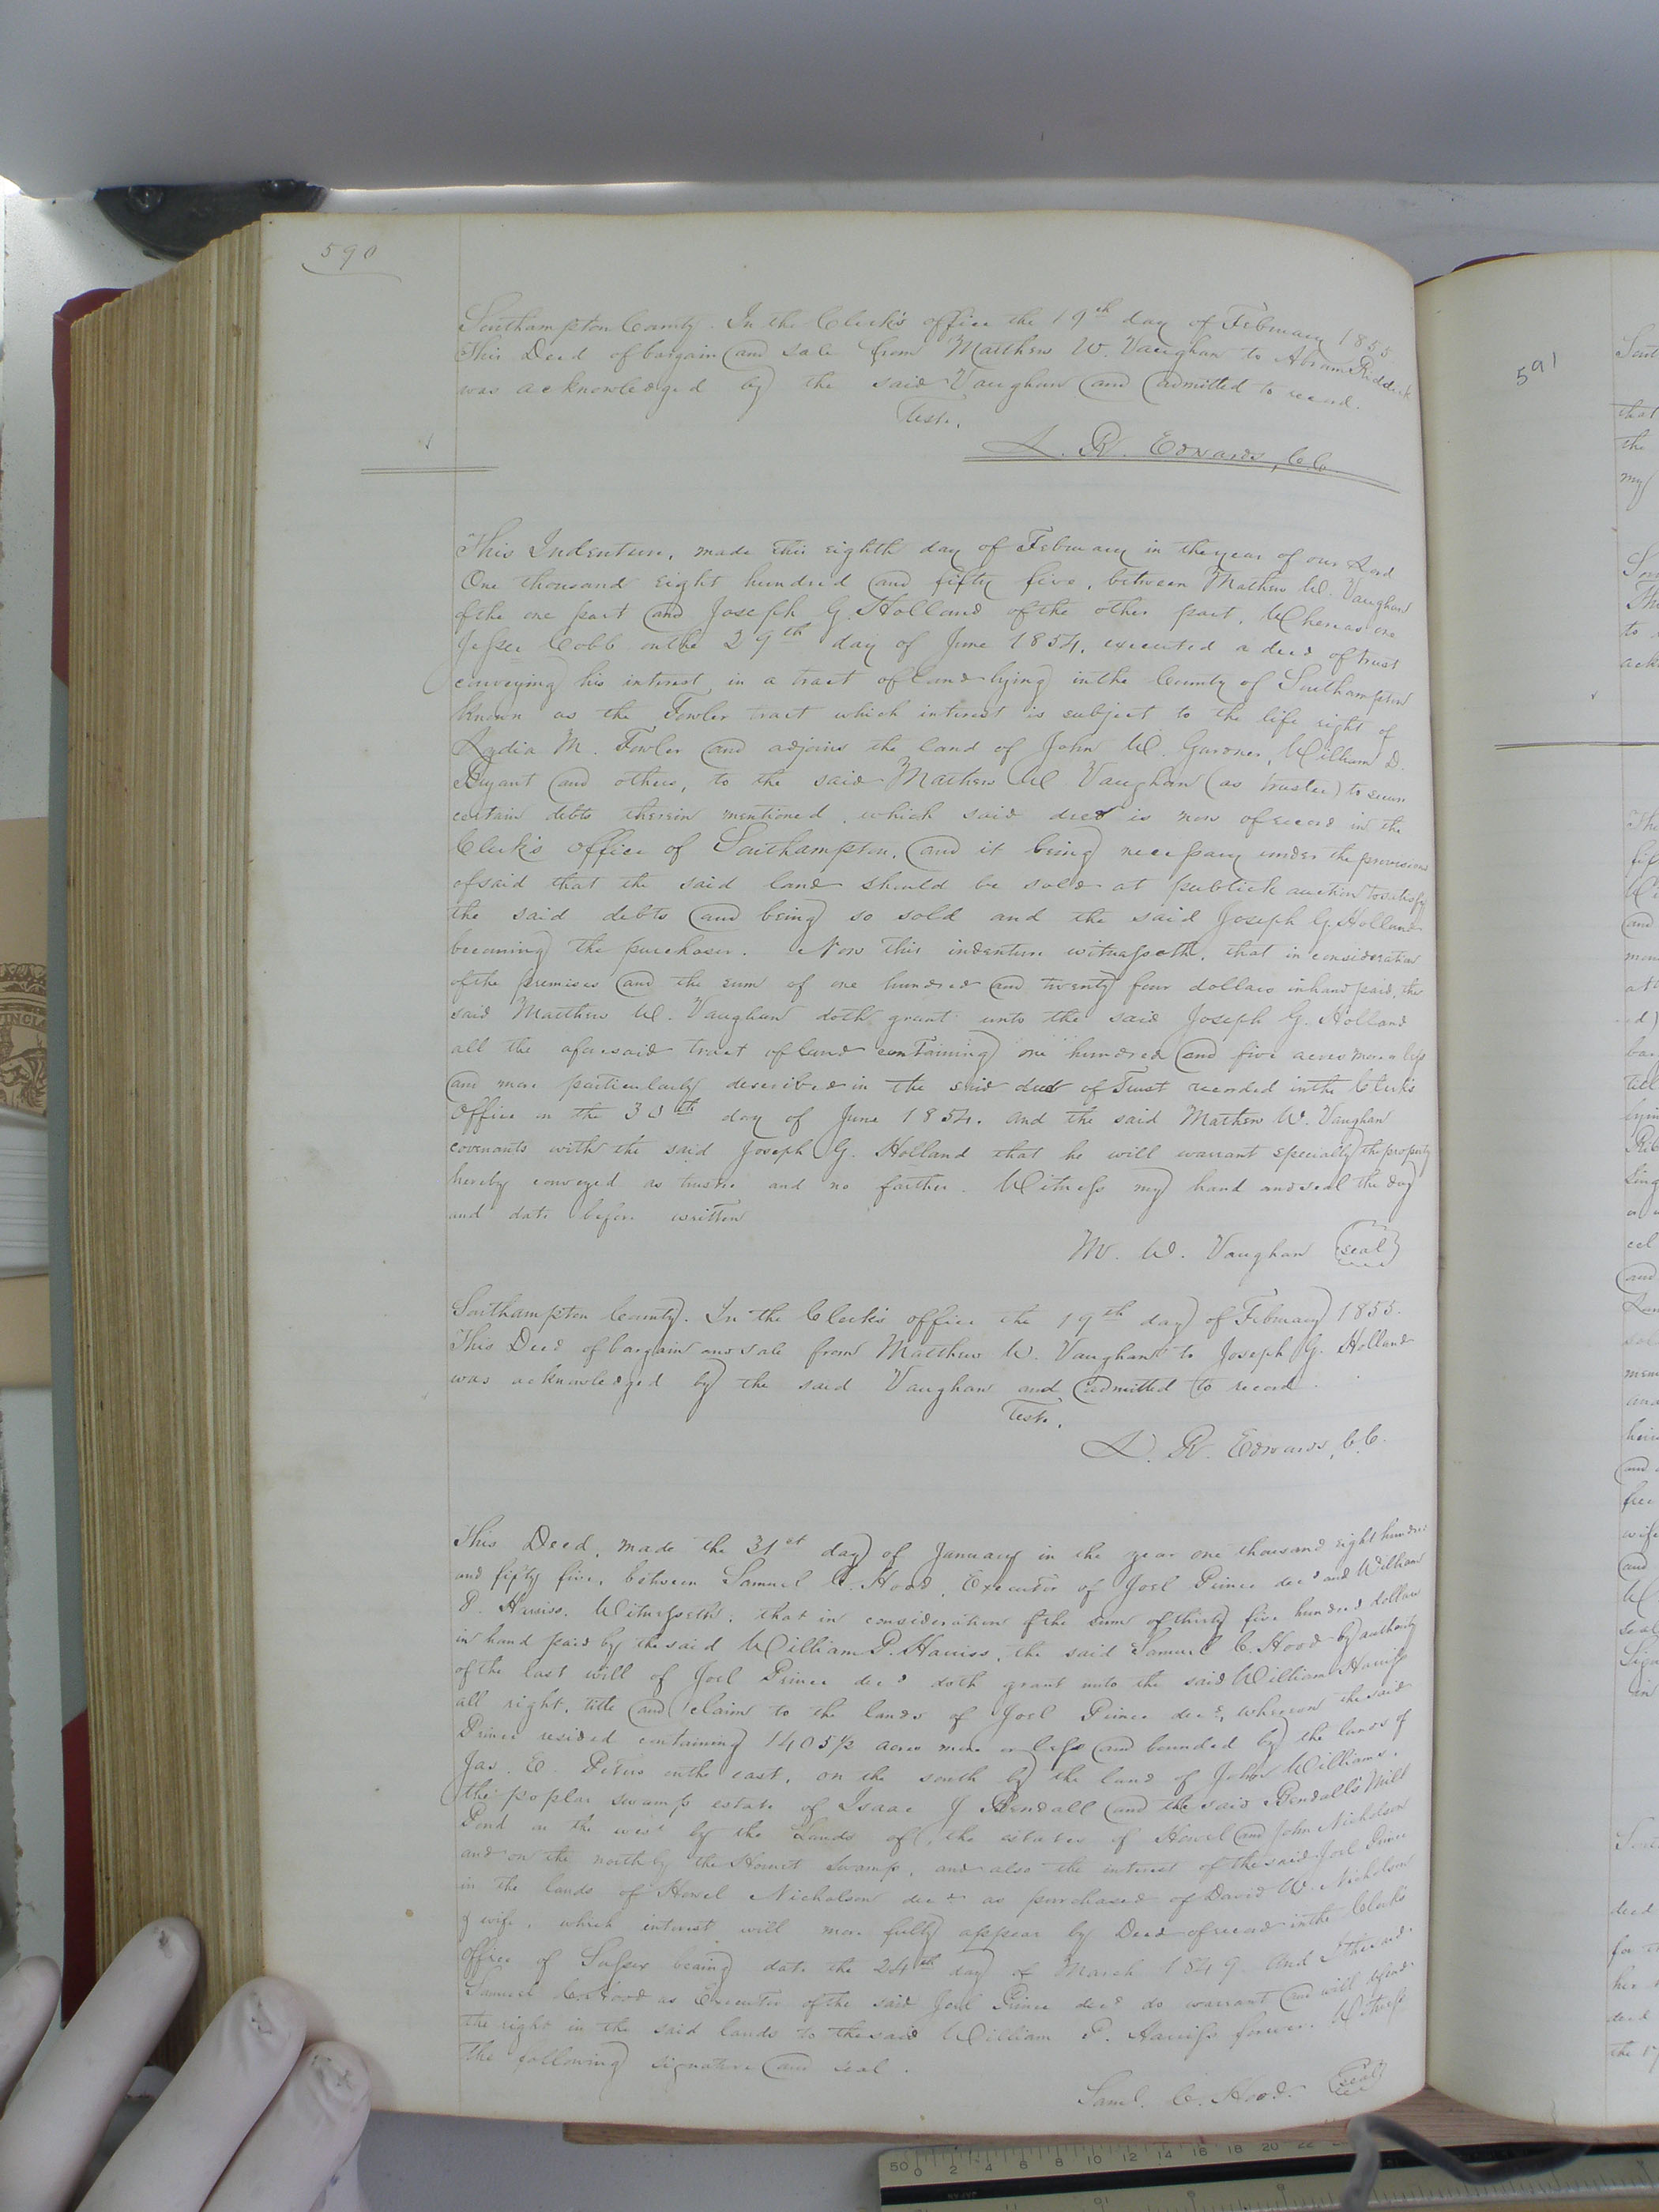 590
Southampton County. In the Clerk's office the 19th day of February 1855
This Deed of bargain and sale from Matthew W. Vaughan to Abram Riddick
was acknowledged by the said Vaughan and admitted to record.
Teste,
L. R. Edwards, C.C.
This Indenture, made this eighth day of February in the year of our Lord
One thousand eight hundred and fifty five, between Mathew W. Vaughan
of the one part and Joseph G. Holland of the other part, Whereas one
Jesse Cobb on the 29th day of June 1854, executed a deed of trust
conveying his interest in a tract of land lying in the County of Southampton
known as the Fowler tract which interest is subject to the life right of
Lydia M. Fowler and adjoins the land of John W. Gardner, William D.
Bryant and others, to the said Mathew W Vaughan (as trustee) to secure
certain debts therein mentioned, which said deed is now of record in the
Clerk's office of Southampton, and it being necessary under the provisions
of said that the said land should be sold at publick auction to satisfy
the said debts and being so sold and the said Joseph G. Holland
becoming the purchaser. Now this indenture witnesseth, that in consideration
of the premises and the sum of one hundred and twenty four dollars in hand paid, the
said Matthew W. Vaughan doth grant unto the said Joseph G. Holland
all the aforesaid tract of land containing one hundred and five acres more or less
and more particularly described in the said deed of Trust recorded in the Clerk's
Office on the 30th day of June 1854. and the said Mathew W. Vaughan
covenants with the said Joseph G. Holland that he will warrant specially the property
hereby conveyed as trustee and no farther. Witness my hand and seal the day
and date before written
M. W. Vaughan (seal)
Southampton County. In the Clerk's office the 19th day of February 1855.
This Deed of bargain and sale from Matthew W. Vaughan to Joseph G. Holland
was acknowledged by the said Vaughan and admitted to record.
Teste,
L. R. Edwards, C.C.
This Deed, made the 31st day of January in the year one thousand eight hundred
and fifty five, between Samuel C. Hood, Executor of Joel Prince decd and William
P. Harriss. Witnesseth: that in consideration of the sum of thirty five hundred dollars
in hand paid by the said William P. Harriss, the said Samuel C. Hood by authority
of the last will of Joel Prince decd doth grant unto the said William Harriss
all right, title and claim to the lands of Joel Prince decd, whereon the said
Prince resided containing 1405½ acres more or less and bounded by the lands of
Jas. E. Peters on the east, on the south by the land of John Williams,
the poplar swamp estate of Isaac J Rendall and the said Rendall's Mill
Pond on the west by the Lands of, the estates of Howel and John Nicholson
and on the north by the Hornet Swamp, and also the interest of the said Joel Prince
in the lands of Howel Nicholson decd as purchased of David W. Nicholson
& wife, which interest will more fully appear by Deed of record in the Clerk's
office of Sussex bearing date the 24th day of March 1849. And I the said
Samuel C. Hood as Executor of the said Joel Prince decd do warrant and will defend
the right in the said lands to the said William P. Harriss forever. Witness
the following signature and seal.
Saml. C. Hood. (seal)
591